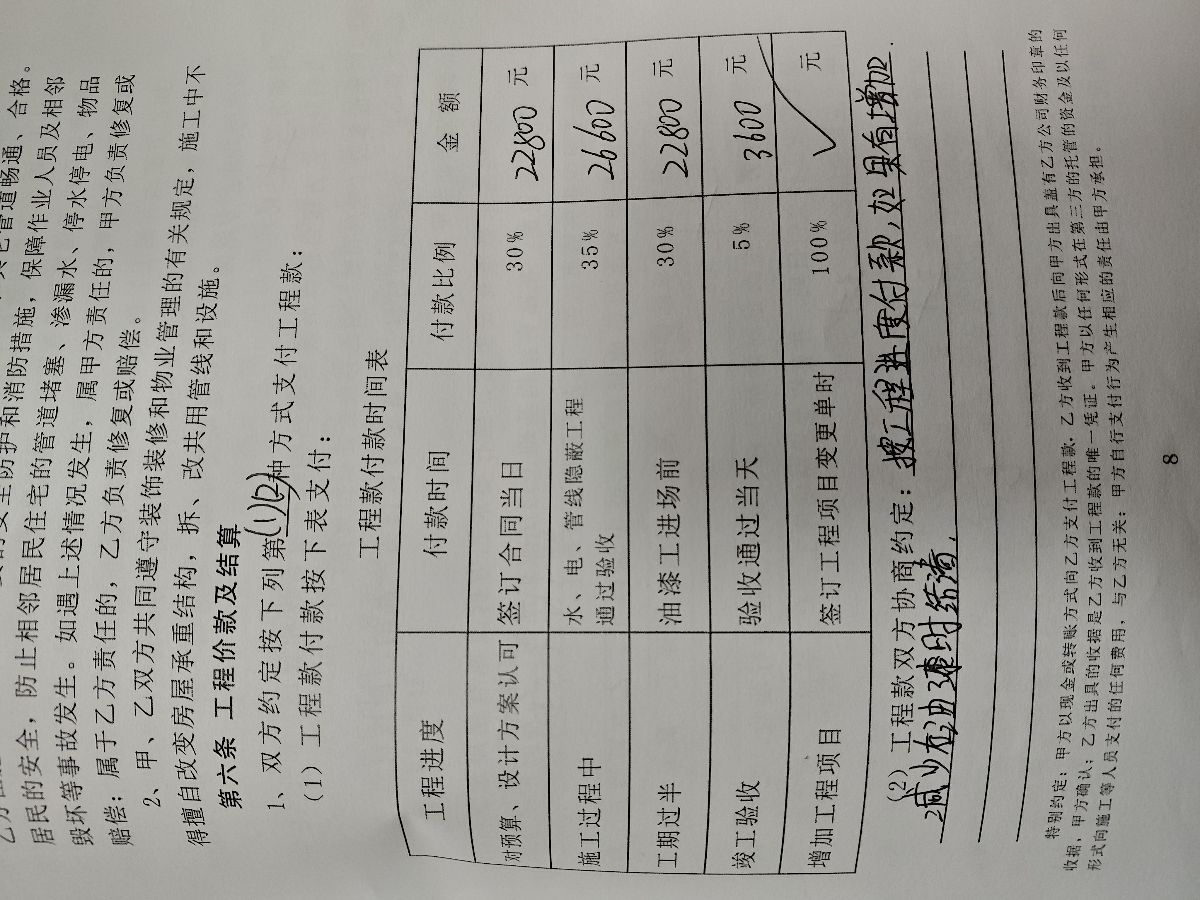 居民的安全，防止相邻居民住宅的管道堵塞、渗漏水、停水停电、物品
毁坏等事故发生。如遇上述情况发生，属甲方责任的，甲方负责修复或
赔偿；属于乙方责任的，乙方负责修复或赔偿。
2、甲、乙双方共同遵守装饰装修和物业管理的有关规定，施工中不
得擅自改变房屋承重结构，拆、改共用管线和设施。
第六条 工程价款及结算
1、双方约定按下列第(1)(2)种方式支付工程款：
(1) 工程款付款按下表支付：
工程款付款时间表
工程进度 付款时间 付款比例 金额
对预算、设计方案认可 签订合同当日 30% 22800 元
施工过程中 水、电、管线隐蔽工程通过验收 35% 26600 元
工期过半 油漆工进场前 30% 22800 元
竣工验收 验收通过当天 5% 3600 元
增加工程项目 签订工程项目变更单时 100% 元
(2) 工程款双方协商约定：按工程进度付款，如果有增加
减少在油漆时结清.
特别约定：甲方以现金或转账方式向乙方支付工程款，乙方收到工程款后向甲方出具盖有乙方公司财务印章的
收据，甲方确认；乙方出具的收据是乙方收到工程款的唯一凭证。甲方以任何形式在第三方的托管的资金及以任何
形式向施工等人员支付的任何费用，与乙方无关；甲方自行支付行为产生相应的责任由甲方承担。
8